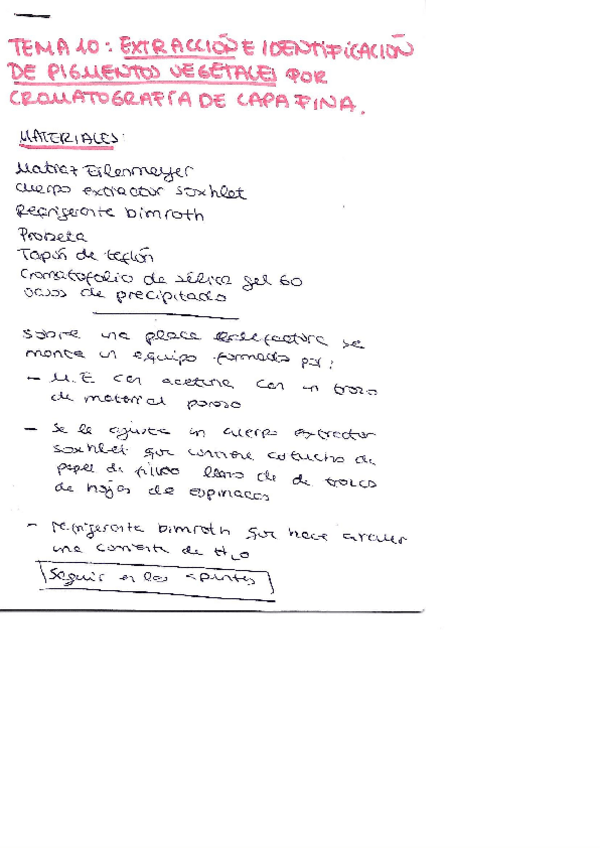 TEMA 10: EXTRACCIÓN E IDENTIFICACIÓN
DE PIGMENTOS VEGETALES POR
CROMATOGRAFÍA DE CAPA FINA.
MATERIALES:
Matraz Erlenmeyer
Cuerpo extractor soxhlet
Refrigerante bimroth
Probeta
Tapón de teflón
Cromatofolio de sílica gel 60
vasos de precipitado
Sobre una placa calefactora se
monta un equipo formado por:
- M.E con acetona con un trozo
de material poroso
- Se le ajusta un cuerpo extractor
soxhlet que contiene cartucho de
papel de filtro lleno de de trozos
de hojas de espinacas
- refrigerante bimroth que hace circular
una corriente de H2O
Seguir en los apuntes